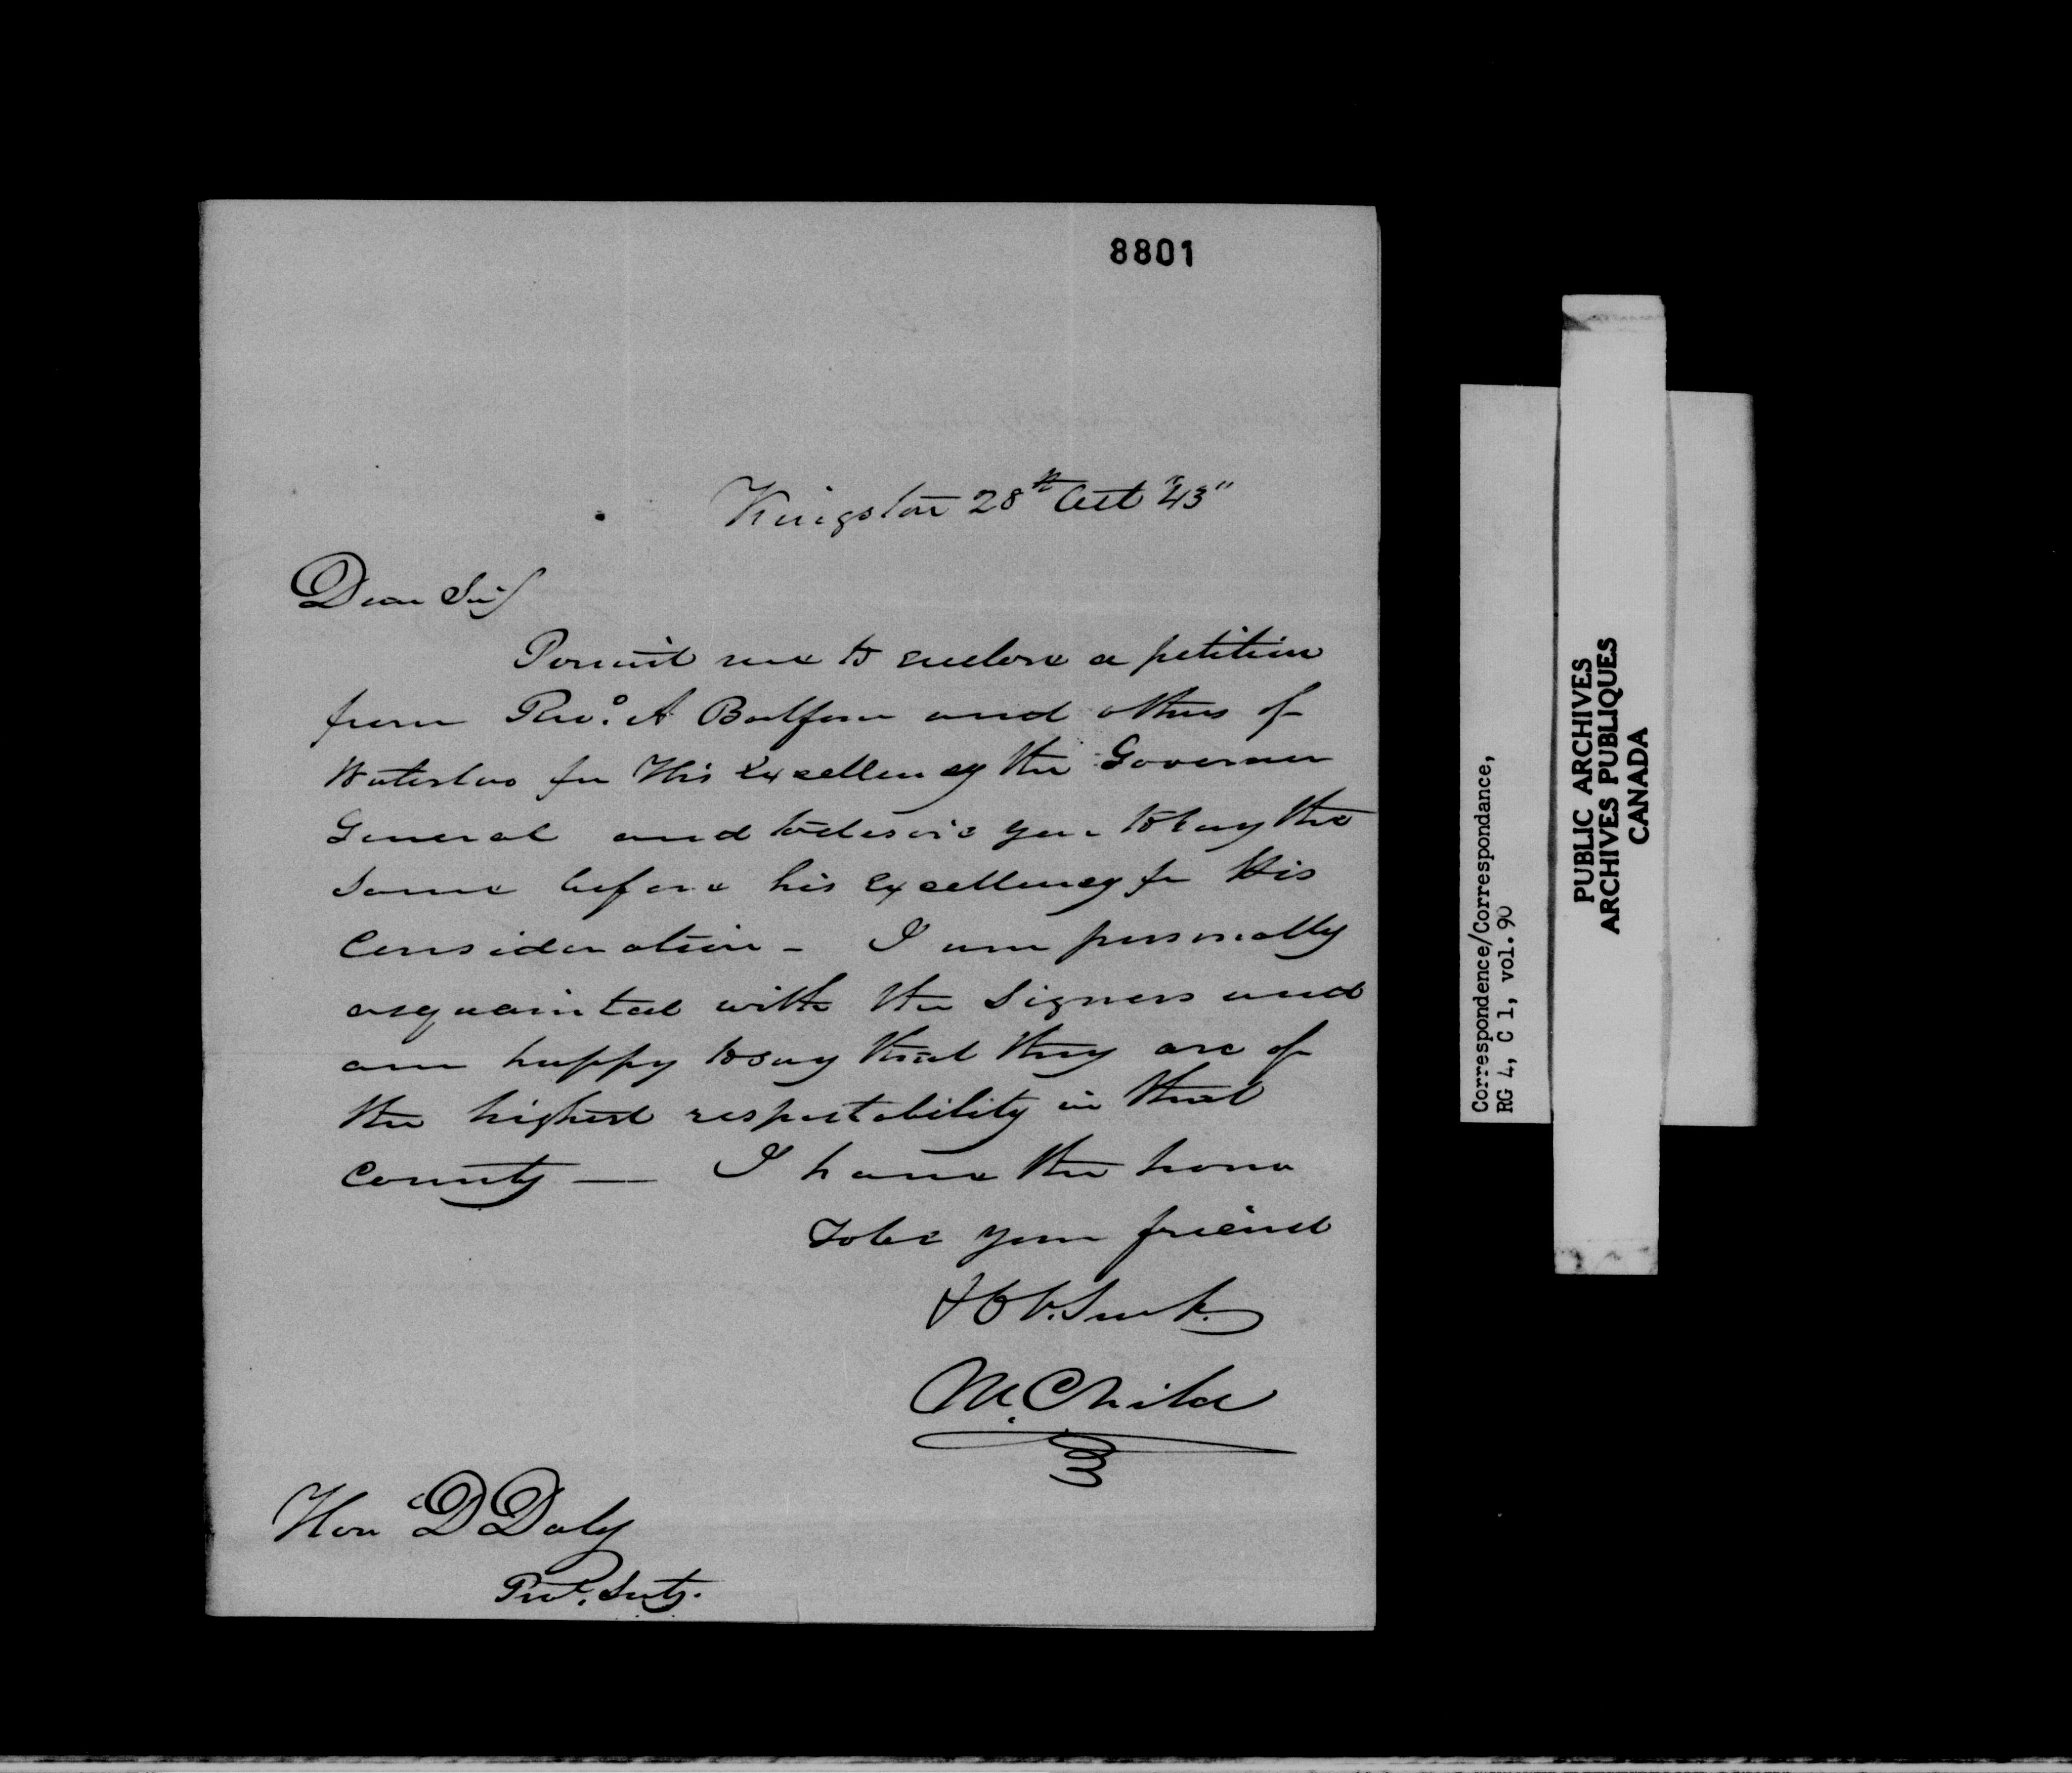 8801
Kingston 28th Oct "43"
Dear Sir/
Permit me to enclose a petition
from Revo. A Balfour and others of
Waterloo for His Excellency the Governer
General and to desire you to lay the
same before his Excellency for His
Consideration - I am personally
asquainted with the Signers and
am happy to say that they are of
the highest respectability in that
County — I have the honor
to be your friend
& Ob. V. Servt.
M. Child
Hon D Daly
Prov. Secty.
Correspondence/Correspondance,
RG 4, C 1, vol.90
PUBLIC ARCHIVES
ARCHIVES PUBLIQUES
CANADA